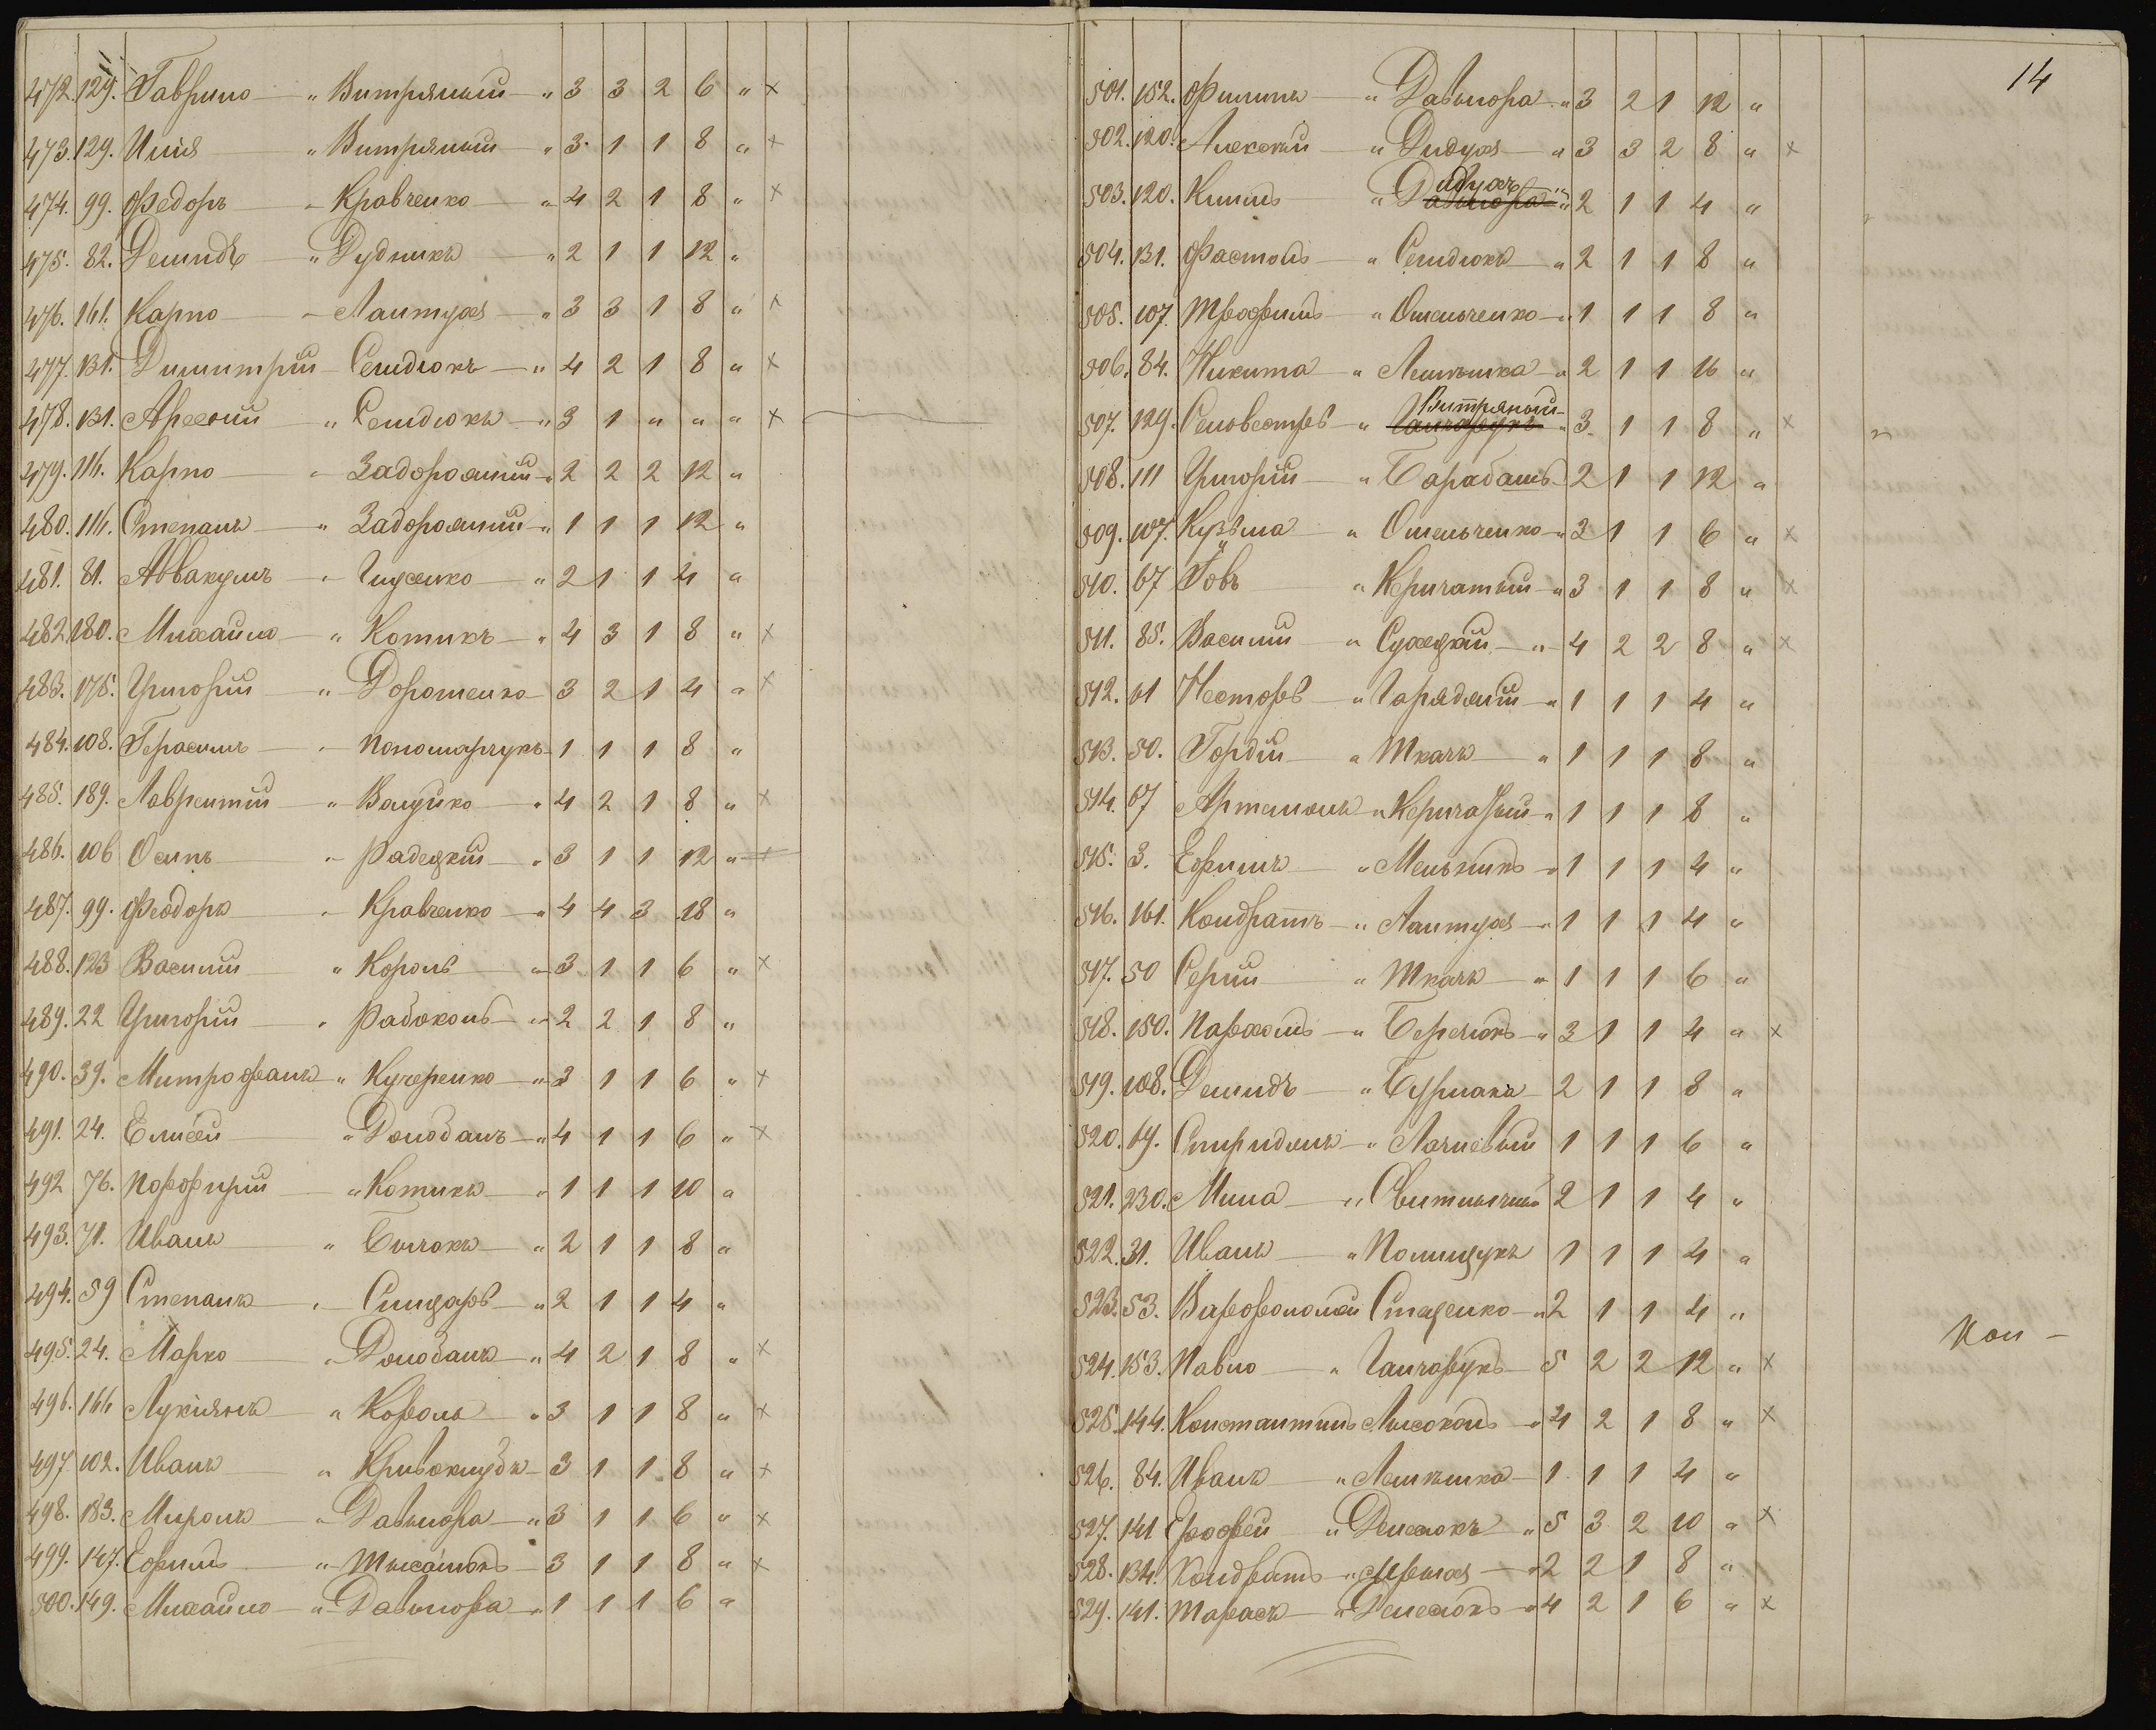 472. 129. Гаврило — „ Витряный — „ 3 3 2 6 „ ×
473. 129. Илія „ Витряный — „ 3. 1 1 8 „ ×
474. 99. Федоръ — Кравченко — „ 4 2 1 8 „ ×
475. 82. Демидъ — „ Дудникъ „ 2 1 1 12 „
476. 161. Карпо — Лантухъ — „ 3 3 1 8 „ ×
477. 131. Димитрій — Семдюкъ — „ 4 2 1 8 „ ×
478. 131. Арсеній „ Семдюкъ — „ 3 1 „ „ „ ×
479. 114. Карпо — Задорожній „ 2 2 2 12 „
480. 114. Степанъ — „ Задорожній „ 1 1 1 12 „
481. 81. Аввакумъ — „ Гусенко — „ 2 1 1 4 „
482. 180. Михайло — „ Котикъ — „ 4 3 1 8 „ ×
483. 175. Григорій „ Дорошенко — 3 2 1 4 „ ×
484. 108. Герасимъ — Пономарчукъ 1 1 1 8 „
485. 189. Лаврентій — „ Валуйко — „ 4 2 1 8 „ ×
486. 106 Осипъ „ Радецкій — „ 3 1 1 12 „ ×
487. 99. Феодоръ — Кравченко — „ 4 4 3 18 „
488. 123 Василій „ Король — „ 3 1 1 6 „ ×
489. 22 Григорій — „ Рабоконь — „ 2 2 1 8 „
490. 39. Митрофанъ „ Кучеренко — „ 3 1 1 6 „ ×
491. 24. Елисей „ Долобанъ „ 4 1 1 6 „ ×
492 76. Порфирій „ Котикъ — „ 1 1 1 10 „
493. 71. Иванъ — „ Бычокъ — „ 2 1 1 8 „
494. 59 Степанъ — „ Слюсарь — „ 2 1 1 4 „
495. 24. Марко „ Долобанъ — „ 4 2 1 8 „ ×
496. 144 Лукіянъ — „ Король — „ 3 1 1 8 „ ×
497 102. Иванъ „ Кривоклубъ — 3 1 1 8 „ ×
498. 183. Миронъ — „ Давыпора — „ 3 1 1 6 „ ×
499. 147. Ефимъ — 3 1 1 8 „ ×
500. 149. Михайло — „ Давыпора „ 1 1 1 6 „
14
501. 152. Филипъ — „ Давыпора „ 3 2 1 12 „
502. 120. Алексѣй — „ Дидухъ — „ 3 3 2 8 „ ×
503. 120. Климъ „ Дидухъ „ 2 1 1 4 „
504. 131. Фастомъ — „ Семдюкъ — „ 2 1 1 8 „
505. 107. Трофимъ — „ Омельченко „ 1 1 1 8 „
506. 84. Никита — „ Лемѣшка — „ 2 1 1 16 „
507. 129. Селовестръ „ Витряный Ганчарукъ „ 3. 1 1 8 „ ×
508. 111 Григорій — „ Барабашъ 2 1 1 12 „
509. 107. Кузьма — „ Омельченко „ 3 1 1 6 „ ×
510. 67 Іовъ „ Керничатый „ 3 1 1 8 „ ×
511. 85. Василій — „ Сухецкій — „ 4 2 2 8 „ ×
512. 61 Несторъ — „ Гарядній — „ 1 1 1 4 „
513. 50. Гордій — „ Ткачъ — „ 1 1 1 8 „
514. 67 Артемонъ „ Керничатый „ 1 1 1 8 „
515. 3. Ефимъ — „ Мельникъ — 1 1 1 4 „
516. 161. Кондратъ — „ Лантухъ — „ 1 1 1 4 „
517. 50 Сергій — „ Ткачъ — „ 1 1 1 6 „
518. 150. Пархомъ — „ Бережокъ — „ 3 1 1 4 „ ×
519. 108. Демидъ — „ Бурлака — 2 1 1 8 „
520. 64. Спиридонъ — 1 1 1 6 „
521. 230. Мина — „ Свитлычный 2 1 1 4 „
522. 31. Иванъ — „ Полищукъ 1 1 1 4 „
523. 53. Варфоломей Стаценко — „ 2 1 1 4 „
524. 153. Павло — „ Ганчарукъ — 5 2 2 12 „ ×
525. 144. Константинъ Лысоконь „ 4 2 1 8 „ ×
526. 84. Иванъ — „ Лемѣшка — 1 1 1 4 „
527. 141 Ерофей — „ Денесюкъ „ 5 3 2 10 „ ×
528. 134. Кондратъ „ 2 2 1 8 „
529. 141. Тарасъ — „ Денесюкъ „ 4 2 1 6 „ ×